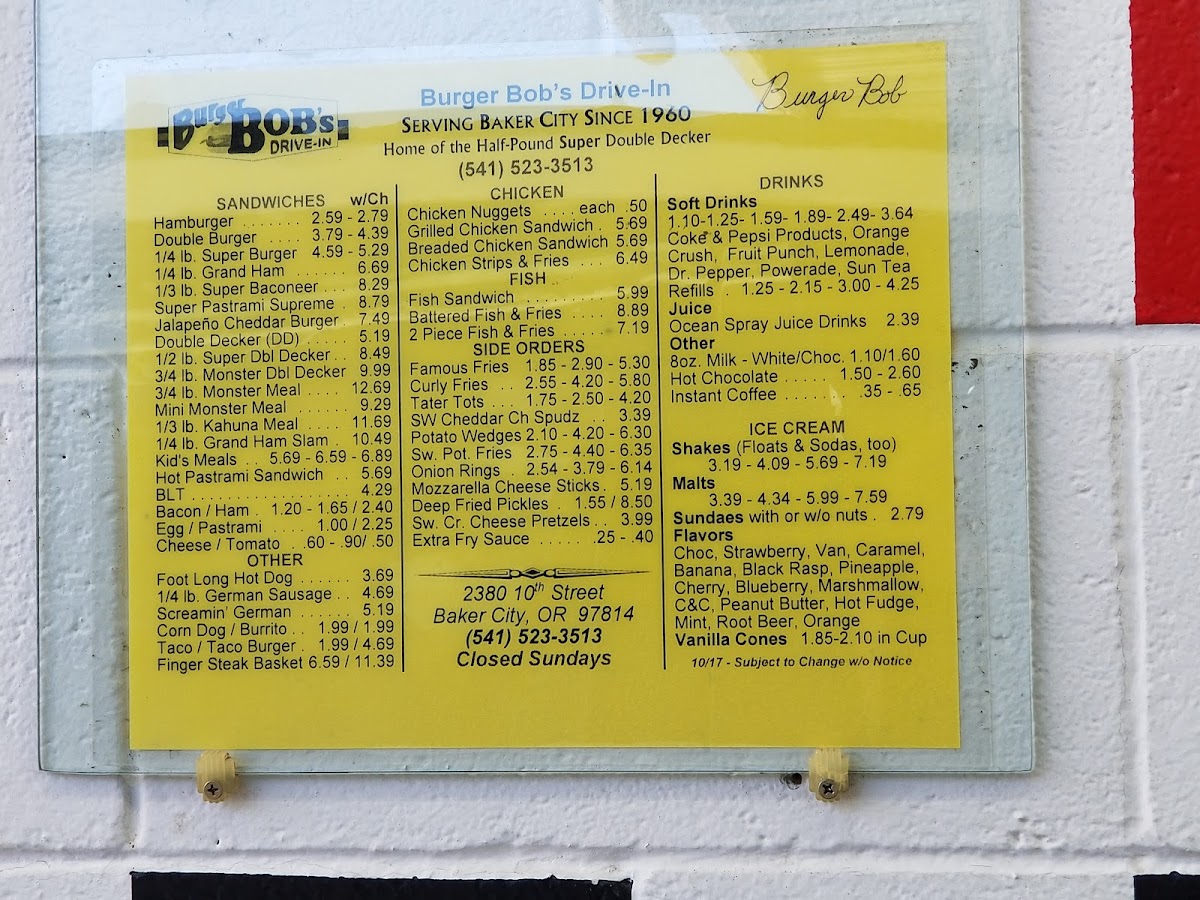 Burger BOB's
DRIVE-IN
Burger Bob's Drive-In
SERVING BAKER CITY SINCE 1960
Home of the Half-Pound Super Double Decker
(541) 523-3513
Burger Bob
SANDWICHES w/Ch
Hamburger . . . . . . . 2.59 - 2.79
Double Burger . . . . . 3.79 - 4.39
1/4 lb. Super Burger 4.59 - 5.29
1/4 lb. Grand Ham . . . . . . . 6.69
1/3 lb. Super Baconeer . . . 8.29
Super Pastrami Supreme . 8.79
Jalapeño Cheddar Burger . 7.49
Double Decker (DD) . . . . . 5.19
1/2 lb. Super Dbl Decker . . 8.49
3/4 lb. Monster Dbl Decker 9.99
3/4 lb. Monster Meal . . . . 12.69
Mini Monster Meal . . . . . . 9.29
1/3 lb. Kahuna Meal . . . . 11.69
1/4 lb. Grand Ham Slam . 10.49
Kid's Meals . . 5.69 - 6.59 - 6.89
Hot Pastrami Sandwich . . 5.69
BLT . . . . . . . . . . . . . . . . . 4.29
Bacon / Ham . 1.20 - 1.65 / 2.40
Egg / Pastrami . . . . 1.00 / 2.25
Cheese / Tomato . .60 - .90/ .50
OTHER
Foot Long Hot Dog . . . . . . 3.69
1/4 lb. German Sausage . . 4.69
Screamin' German . . . . . 5.19
Corn Dog / Burrito . . 1.99 / 1.99
Taco / Taco Burger . 1.99 / 4.69
Finger Steak Basket 6.59 / 11.39
CHICKEN
Chicken Nuggets . . . . each .50
Grilled Chicken Sandwich . 5.69
Breaded Chicken Sandwich 5.69
Chicken Strips & Fries . . . . 6.49
FISH
Fish Sandwich . . . . . . . . . 5.99
Battered Fish & Fries . . . . 8.89
2 Piece Fish & Fries . . . . . 7.19
SIDE ORDERS
Famous Fries 1.85 - 2.90 - 5.30
Curly Fries . . 2.55 - 4.20 - 5.80
Tater Tots . . . 1.75 - 2.50 - 4.20
SW Cheddar Ch Spudz . . 3.39
Potato Wedges 2.10 - 4.20 - 6.30
Sw. Pot. Fries 2.75 - 4.40 - 6.35
Onion Rings . 2.54 - 3.79 - 6.14
Mozzarella Cheese Sticks. 5.19
Deep Fried Pickles . 1.55 / 8.50
Sw. Cr. Cheese Pretzels . . 3.99
Extra Fry Sauce . . . . . .25 - .40
2380 10th Street
Baker City, OR 97814
(541) 523-3513
Closed Sundays
DRINKS
Soft Drinks
1.10-1.25- 1.59- 1.89- 2.49- 3.64
Coke & Pepsi Products, Orange
Crush, Fruit Punch, Lemonade,
Dr. Pepper, Powerade, Sun Tea
Refills . 1.25 - 2.15 - 3.00 - 4.25
Juice
Ocean Spray Juice Drinks 2.39
Other
8oz. Milk - White/Choc. 1.10/1.60
Hot Chocolate . . . . . 1.50 - 2.60
Instant Coffee . . . . . . . .35 - .65
ICE CREAM
Shakes (Floats & Sodas, too)
3.19 - 4.09 - 5.69 - 7.19
Malts
3.39 - 4.34 - 5.99 - 7.59
Sundaes with or w/o nuts . 2.79
Flavors
Choc, Strawberry, Van, Caramel,
Banana, Black Rasp, Pineapple,
Cherry, Blueberry, Marshmallow,
C&C, Peanut Butter, Hot Fudge,
Mint, Root Beer, Orange
Vanilla Cones 1.85-2.10 in Cup
10/17 - Subject to Change w/o Notice